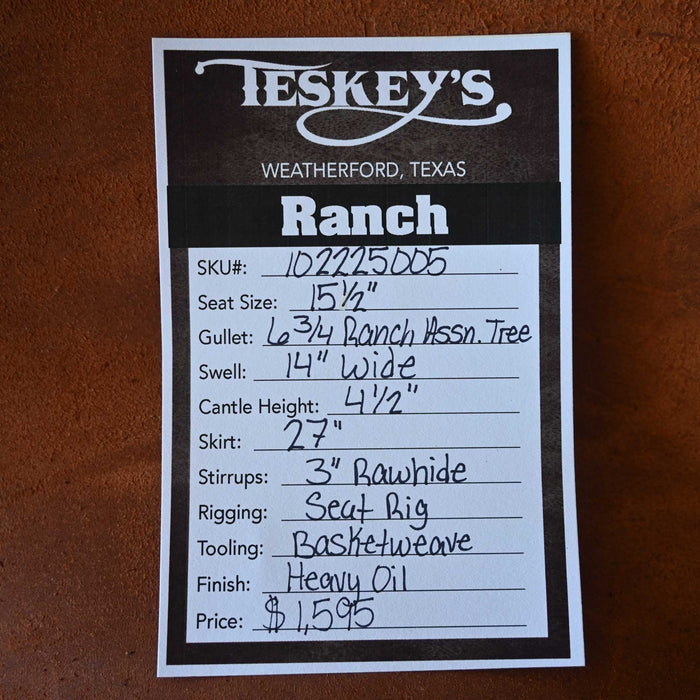 TESKEY'S
WEATHERFORD, TEXAS
Ranch
SKU#: 102225005
Seat Size: 15½"
Gullet: 6 3/4 Ranch Assn. Tree
Swell: 14" Wide
Cantle Height: 4 1/2"
Skirt: 27"
Stirrups: 3" Rawhide
Rigging: Seat Rig
Tooling: Basketweave
Finish: Heavy Oil
Price: $1,595